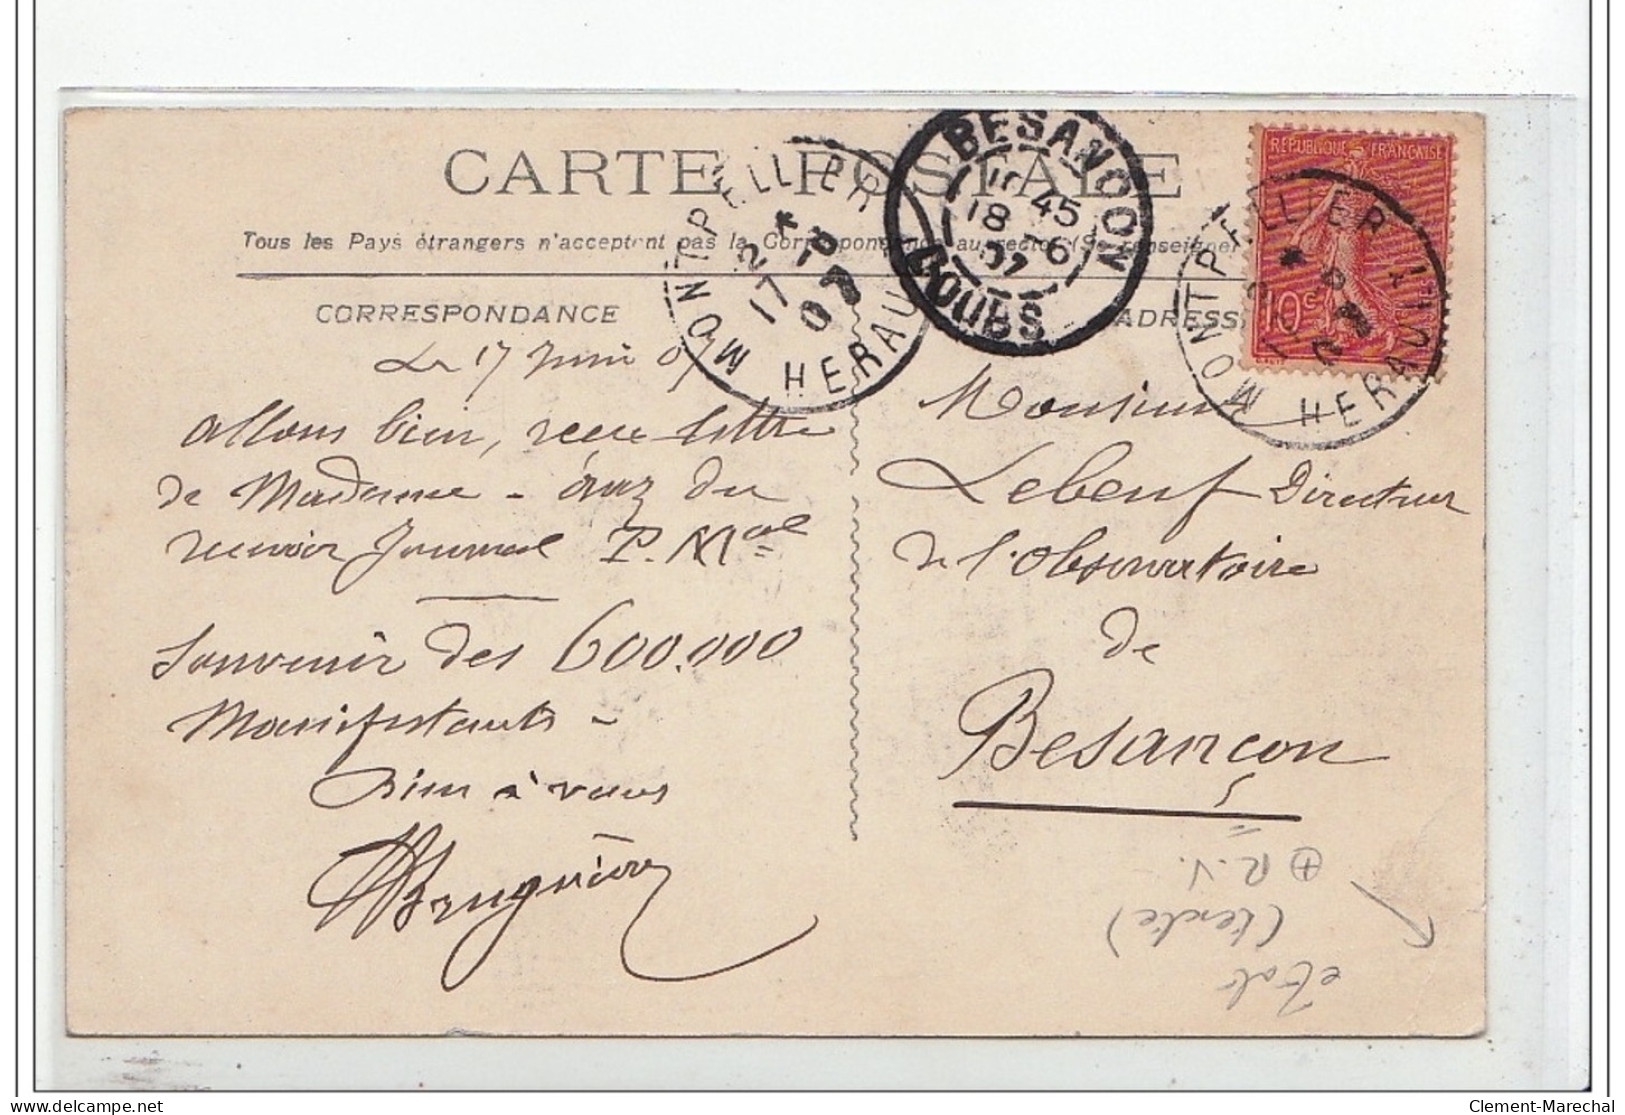 CARTE POSTALE
Tous les Pays étrangers n'acceptent pas la Correspondance au recto (Se renseigner
CORRESPONDANCE
ADRESSE
MONTPELLIER
2 *
17 - 6
07
HERAULT
BESANCON
10 45
18 6
07
DOUBS
REPUBLIQUE FRANÇAISE
10c
MONTPELLIER
HERAULT
Le 17 Juin 07
allons bien, reçu lettre
de Madame - du
recevoir Journal P. Mal
Souvenir des 600.000
Manifestants -
Bien à vous
Monsieur
Lebeuf Directeur
de l'Observatoire
de
Besançon
+ R.V.
état
Clement-Marechal